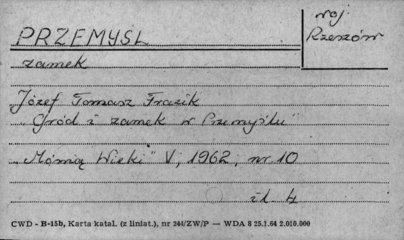 PRZEMYSL
woj
Rzeszów
zamek
Józef Tomasz Frazik
"Gród i zamek w Przemyślu"
"Mówią Wieki" V, 1962, nr 10
il 4
CWD - B-15b, Karta katal. (z liniat.), nr 244/ZW/P — WDA 8 25.1.64 2.010.000